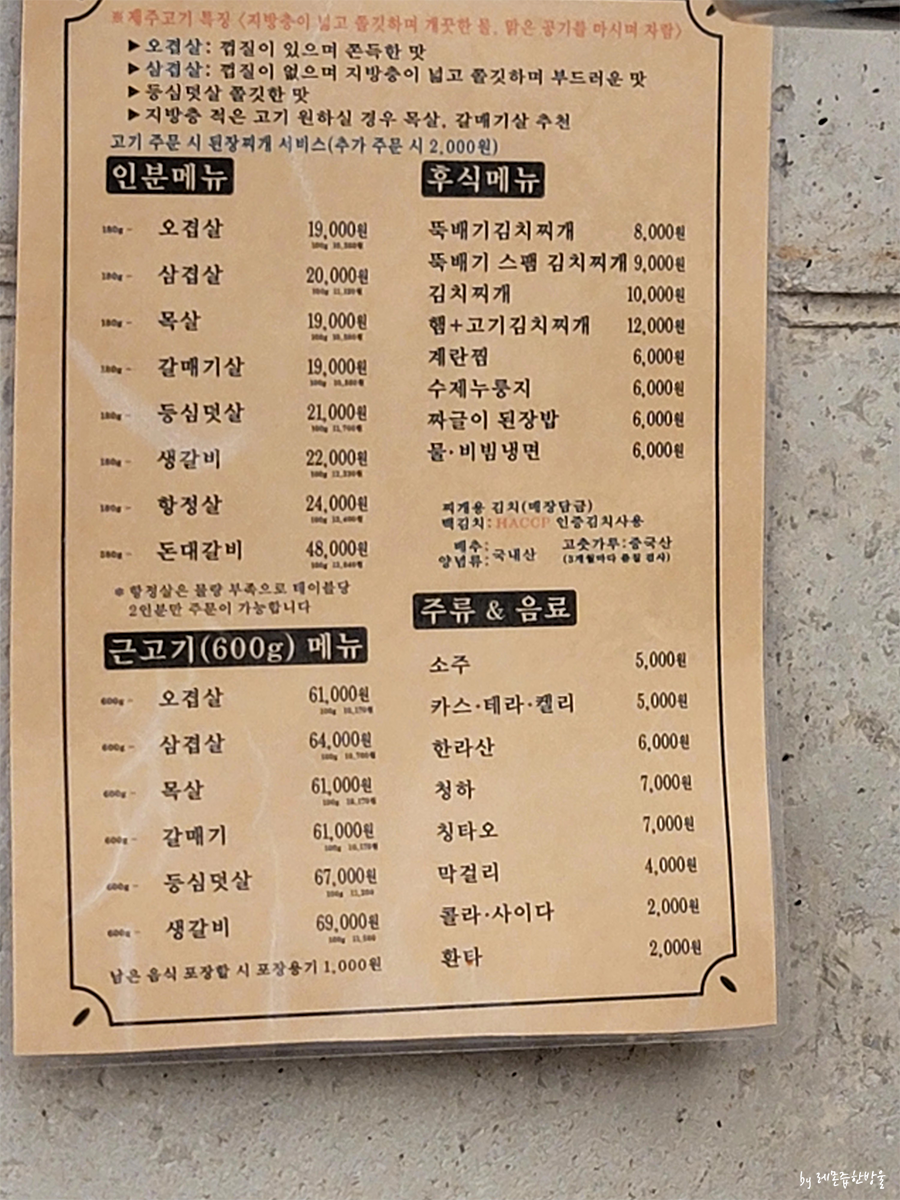 ※제주고기 특징 <지방층이 넓고 쫄깃하며 개끗한 물, 맑은 공기를 마시며 자람>
▶오겹살: 껍질이 있으며 쫀득한 맛
▶삼겹살: 껍질이 없으며 지방층이 넓고 쫄깃하며 부드러운 맛
▶등심덧살 쫄깃한 맛
▶지방층 적은 고기 원하실 경우 목살, 갈매기살 추천
고기 주문 시 된장찌개 서비스(추가 주문 시 2,000원)
인분메뉴
180g - 오겹살 19,000원
180g - 삼겹살 20,000원
180g - 목살 19,000원
180g - 갈매기살 19,000원
180g - 등심덧살 21,000원
180g - 생갈비 22,000원
180g - 항정살 24,000원
돈대갈비 48,000원
※항정살은 물량 부족으로 테이블당
2인분만 주문이 가능합니다
근고기(600g) 메뉴
600g - 오겹살 61,000원
600g - 삼겹살 64,000원
600g - 목살 61,000원
600g - 갈매기 61,000원
600g - 등심덧살 67,000원
600g - 생갈비 69,000원
남은 음식 포장할 시 포장용기 1,000원
후식메뉴
뚝배기김치찌개 8,000원
뚝배기 스팸 김치찌개 9,000원
김치찌개 10,000원
햄+고기김치찌개 12,000원
계란찜 6,000원
수제누룽지 6,000원
짜글이 된장밥 6,000원
물·비빔냉면 6,000원
찌개용 김치(매장담금)
백김치: HACCP 인증김치사용
배추:
양념류: 국내산
고춧가루:중국산
(3개월마다 품질 검사)
주류 & 음료
소주 5,000원
카스·테라·켈리 5,000원
한라산 6,000원
청하 7,000원
칭타오 7,000원
막걸리 4,000원
콜라·사이다 2,000원
환타 2,000원
by 레몬즙한방울